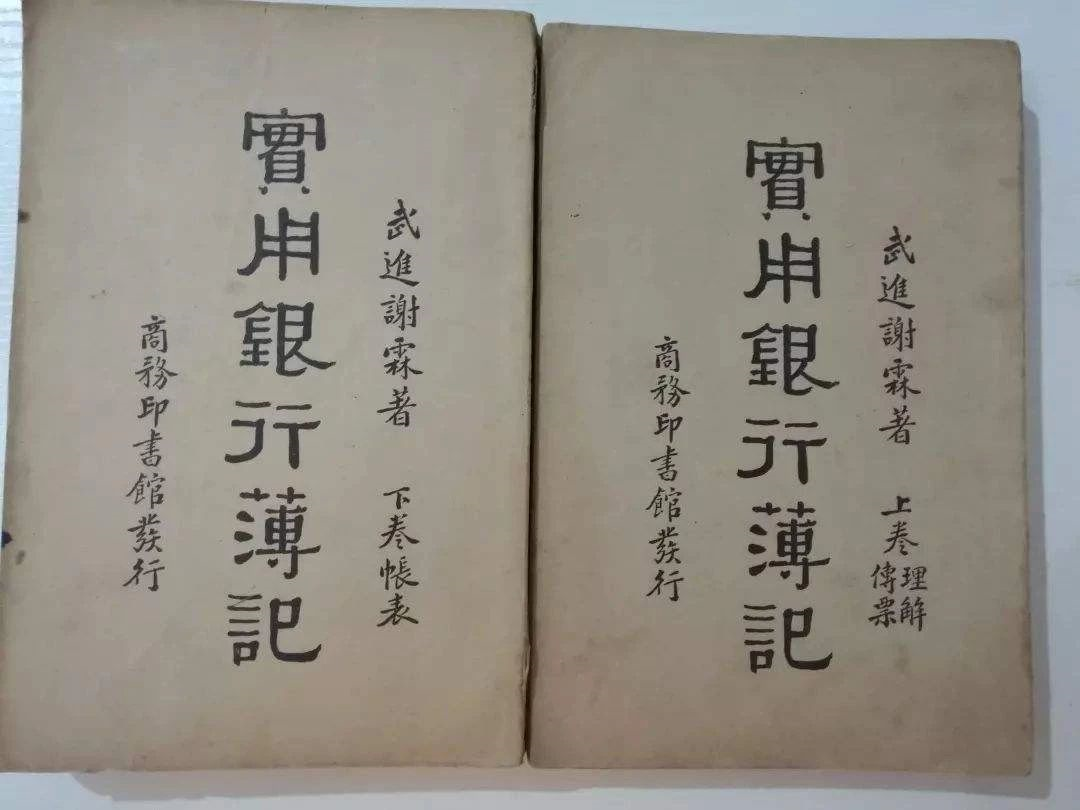 武進謝霖著 上卷 理解 傳票
實用銀行薄記
商務印書館發行
武進謝霖著 下卷帳表
實用銀行薄記
商務印書館發行